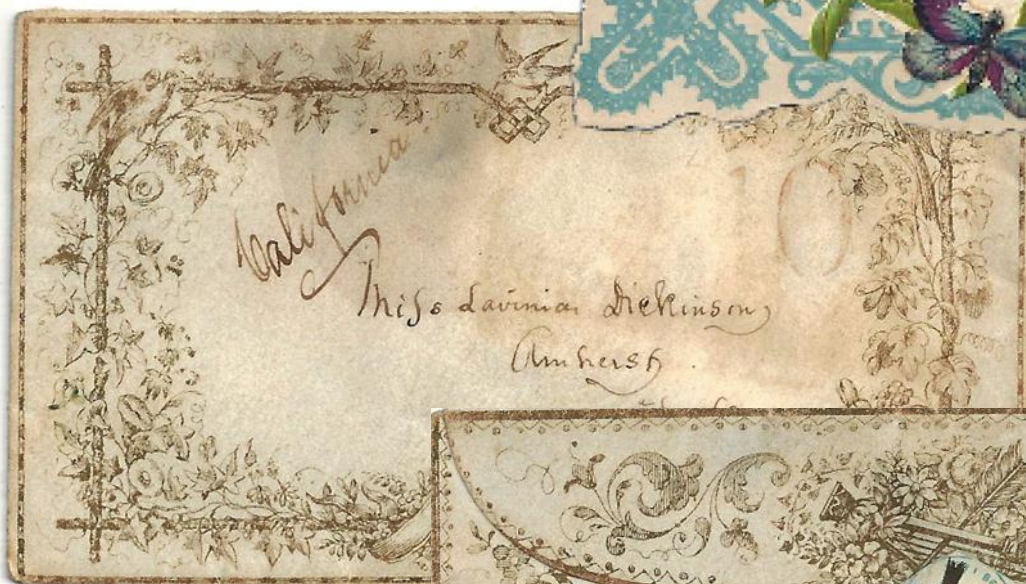 California
10
Miss Lavinia Dickinson
Amherst